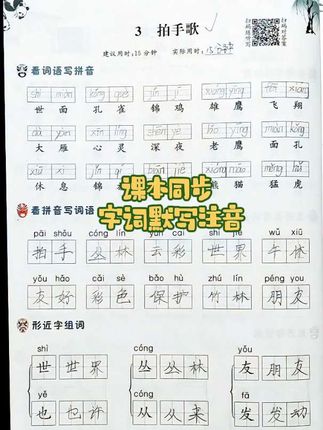 3 拍手歌
扫码听写 扫码对答案
建议用时:15分钟 实际用时:15分钟
看词语写拼音
shì miàn kǒng què jǐn jī xióng yīng fēi xiáng
世面 孔雀 锦鸡 雄鹰 飞翔
dà yàn xīn líng shēn yè lǐ miàn
大雁 心灵 深夜 里面
xiū xi
休息 锦 熊猫 猛虎
课本同步
字词默写注音
看拼音写词语
pāi shǒu cóng lín yún cǎi shì jiè
拍手 丛林 云彩 世界 午休
yǒu hǎo cǎi sè bǎo hù zhú lín péng yǒu
友好 彩色 保护 竹林 朋友
形近字组词
shì cóng yǒu
世 世界 丛 丛林 友 朋友
yě cóng fā
也 也许 从 从来 发 发动